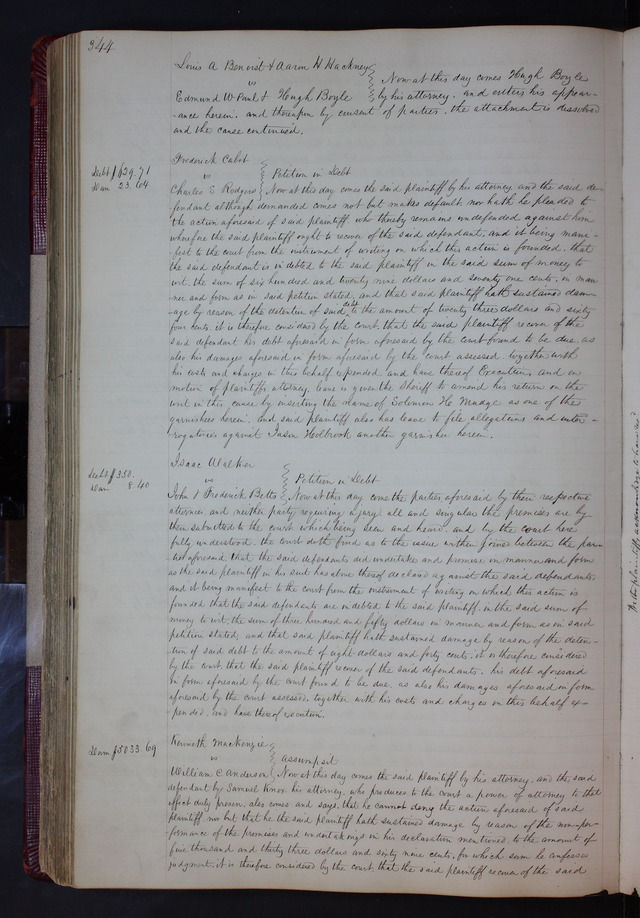 344
Louis A Benoist & Aaron H Hackney
vs Now at this day comes Hugh Boyle
Edmund W Paul & Hugh Boyle by his attorney, and enters his appear-
-ance herein, and thereupon by consent of parties, the attachment is dissolved
and the cause continued.
Frederick Cabot
Debt $629.71 vs Petition in Debt
Dam 23.64 Charles E Rodgers Now at this day comes the said plaintiff by his attorney and the said de-
fendant although demanded comes not but makes default nor hath he pleaded to
the action aforesaid of said plaintiff who thereby remains undefended against him
wherefore the said plaintiff ought to recover of the said defendant, and it being mani-
fest to the court from the instrument of writing on which this action is founded, that
the said defendant is indebted to the said plaintiff in the said sum of money to
wit, the sum of six hundred and twenty nine dollars and seventy one cents, in man
ner and form as in said petition stated, and that said plaintiff hath sustained dam-
-age by reason of the detention of said debt, to the amount of twenty three dollars and sixty
four cents, it is therefore considered by the court that the said plaintiff recover of the
said defendant his debt aforesaid in form aforesaid by the court found to be due, as
also his damages aforesaid in form aforesaid by the court assessed, together with
his costs and charges in this behalf expended and have thereof Execution, and on
motion of plaintiffs attorney, leave is given the Sheriff to amend his return on the
writ in this cause by inserting the name of Solomon H. Mudge as one of the
garnishees herein. And said plaintiff also has leave to file allegations and inter-
rogatories against Jason Holbrook another garnishee herein.
Isaac Walker
Debt $350. vs Petition in Debt
Dam 8.40 John & Frederick Betts Now at this day come the parties aforesaid by their respective
attornies and neither party requiring a jury all and singular the premises are by
them submitted to the court which being seen and heard and by the court here
fully understood, the court doth find as to the issue within joined between the par
ties aforesaid, that the said defendants did undertake and promise in manner and form
as the said plaintiff in his suit has above thereof declared against the said defendants,
and it being manifest to the court from the instrument of writing on which this action is
founded that the said defendants are indebted to the said plaintiff in the said sum of
money to wit, the sum of three hundred and fifty dollars in manner and form as in said
petition stated, and that said plaintiff hath sustained damage by reason of the deten-
-tion of said debt to the amount of eight dollars and forty cents, it is therefore considered
by the court that the said plaintiff recover of the said defendants, his debt aforesaid
in form aforesaid by the court found to be due, as also his damages aforesaid in form
aforesaid by the court assessed, together with his costs and charges in this behalf ex-
-pended, and have thereof execution.
Kenneth MacKenzie
Dam $5033.69 vs Assumpsit
William C Anderson Now at this day comes the said plaintiff by his attorney, and the said
defendant by Samuel Knox his attorney, who produces to the court a power of attorney to that
effect duly proven, also comes and says, that he cannot deny the action aforesaid of said
plaintiff nor but that he the said plaintiff hath sustained damage by reason of the non-per-
-formance of the promises and undertakings in his declaration mentioned, to the amount of
five thousand and thirty three dollars and sixty nine cents, for which sum he confesses
judgment, it is therefore considered by the court, that the said plaintiff recover of the said